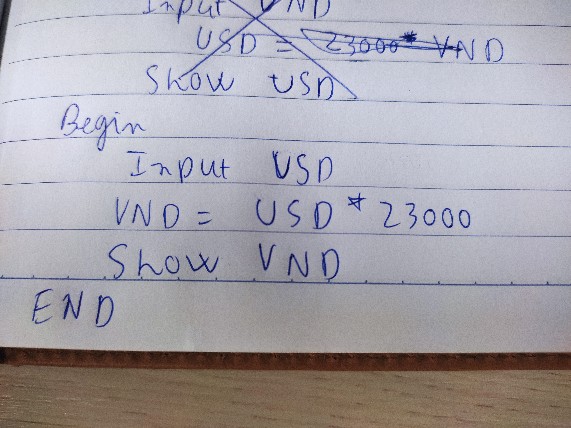 Input VND
USD = 23000* VND
Show USD
Begin
Input USD
VND = USD * 23000
Show VND
END